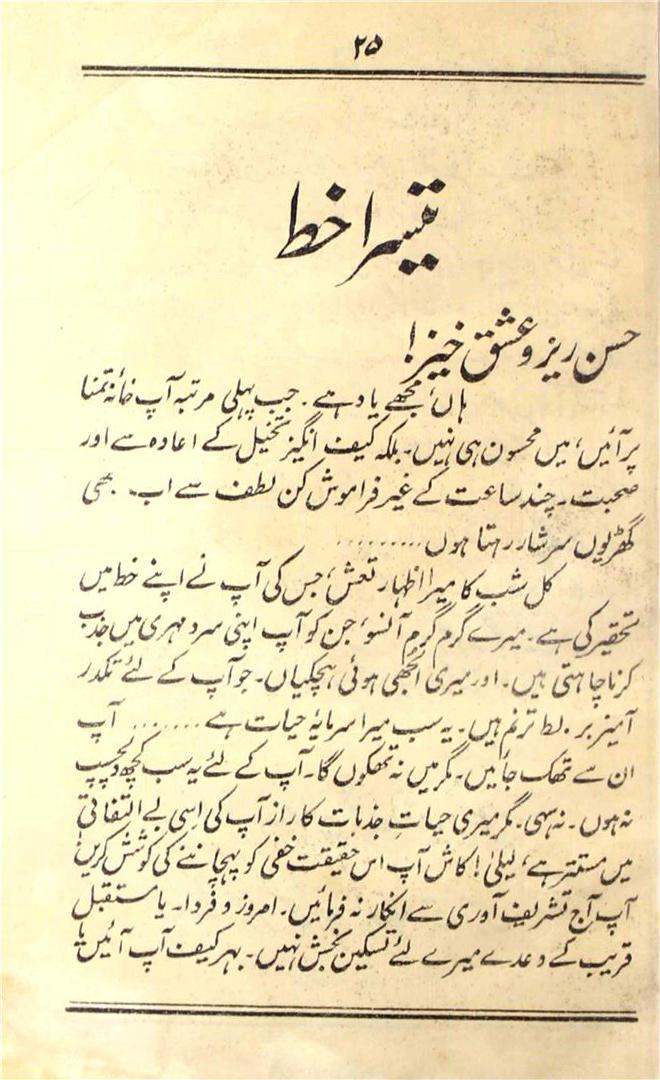 ۲۵
تیسرا خط
حسن ریز و عشق خیز!
ہاں، مجھے یاد ہے. جب پہلی مرتبہ آپ خانۂ تمنا
پر آئیں، میں محسون ہی نہیں۔ بلکہ کیف انگیز تخیل کے اعادہ سے اور
صحبت۔ چند ساعت کے غیر فراموش کن لطف سے اب۔ بھی
گھڑیوں سرشار رہتا ہوں.........
کل شب کا میرا اظہار تعش، جس کی آپ نے اپنے خط میں
تحقیر کی ہے۔ میرے گرم گرم آنسو، جن کو آپ اپنی سرد مہری میں جذب
کرنا چاہتی ہیں۔ اور میری الجھی ہوئی ہچکیاں۔ جو آپ کے لئے تکدر
آمیز بربط ترنم ہیں۔ یہ سب میرا سرمایۂ حیات ہے....... آپ
ان سے تھک جائیں۔ مگر میں نہ تھکوں گا۔ آپ کے لئے یہ سب کچھ دلچسپ
نہ ہوں۔ نہ سہی۔ مگر میری حیاتِ جذبات کا راز آپ کی اِسی بے التفاتی
میں مستتر ہے، لیلیٰ! کاش آپ اس حقیقت خفی کو پہچاننے کی کوشش کریں
آپ آج تشریف آوری سے انکار نہ فرمائیں۔ امروز و فردا۔ یا مستقبل
قریب کے وعدے میرے لئے تسکین بخش نہیں۔ بہر کیف آپ آئیں یا